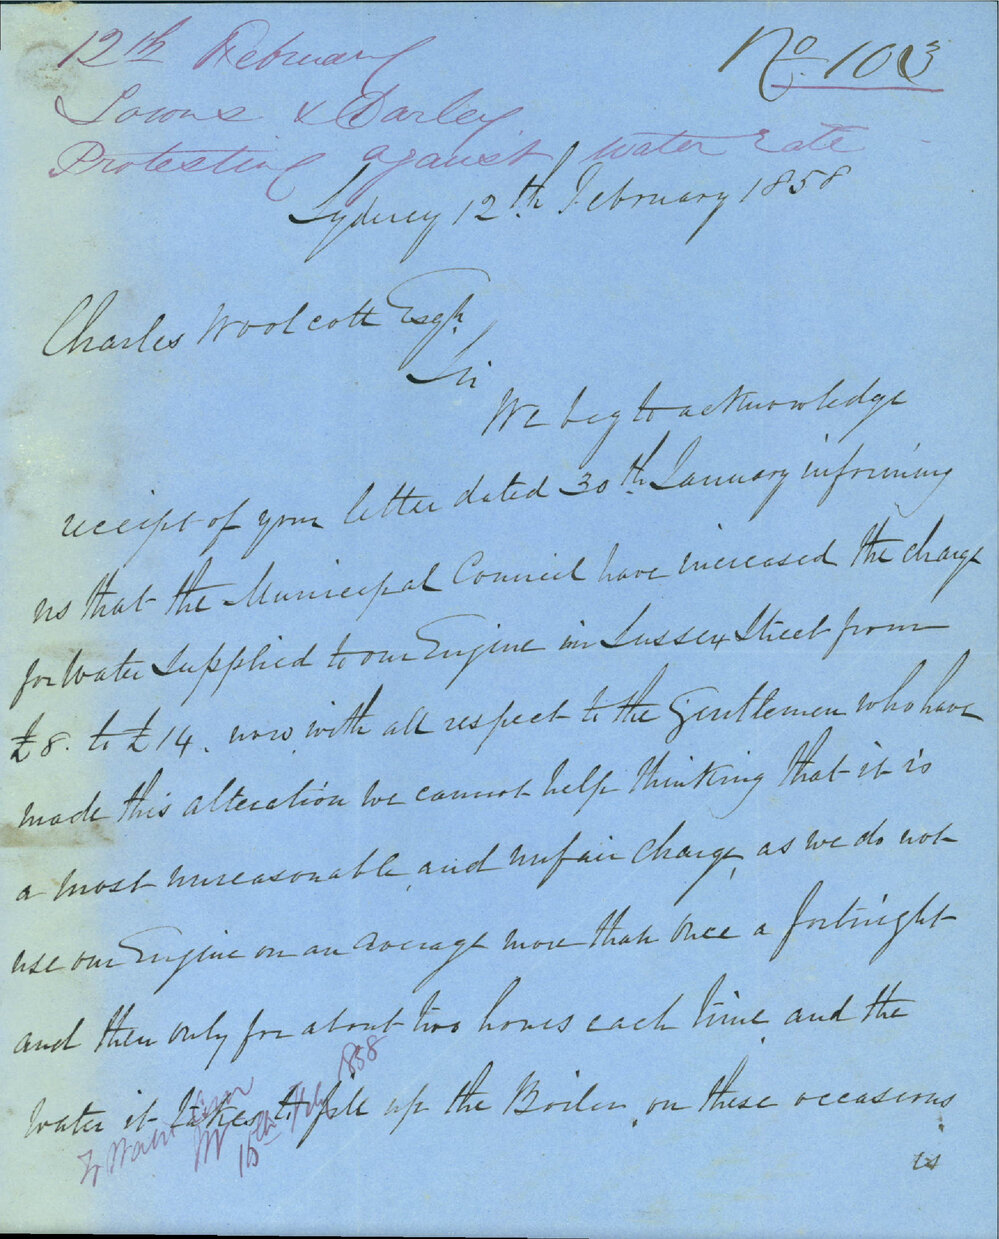 12th February
No. 103
Towns & Darley
Protesting against water rate
Sydney 12th February 1858
Charles Woolcott Esqr.
Sir
We beg to acknowledge
receipt of your letter dated 30th January informing
us that the Municipal Council have increased the charge
for Water Supplied to our Engine in Sussex Street from
£8. to £14. now with all respect to the Gentlemen who have
made this alteration we cannot help thinking that it is
a most unreasonable and unfair charge, as we do not
use our Engine on an average more than once a fortnight
and then only for about two hours each time, and the
Water it takes to fill up the Boiler, on these occasions
is
15th Feby 1858